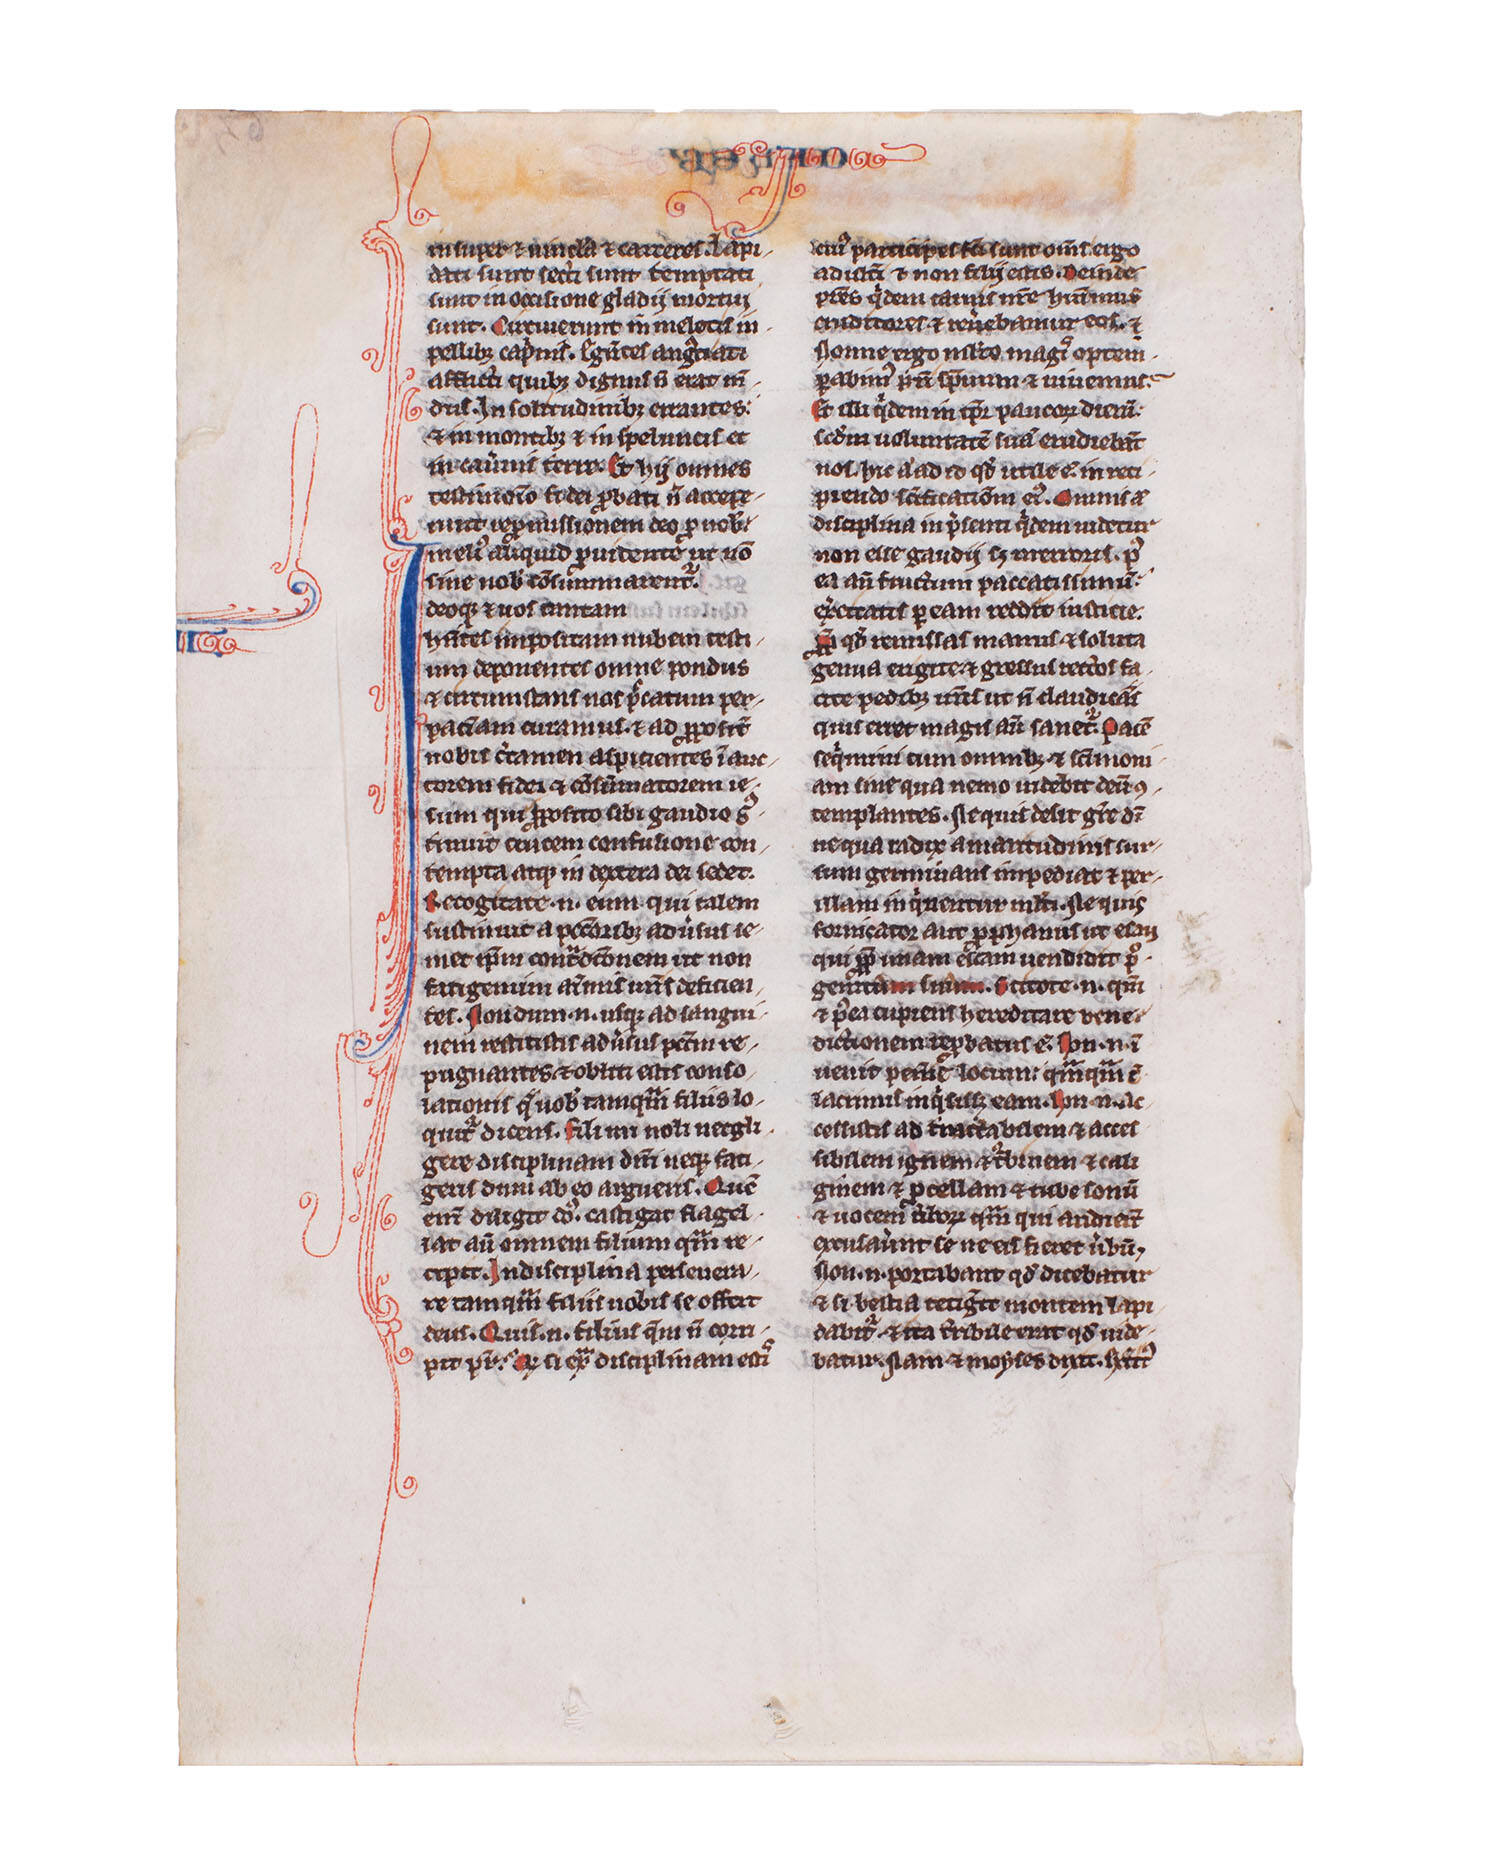 insuper ⁊ uincl̃a ⁊ carceres. Lapi-
dati sunt secti sunt temptati
sunt in occisione gladij mortui
sunt. Circuierunt in melotis in
pellibꝫ cap̃nis. Egẽtes angꝰtiati
afflicti quibꝫ dignus ñ erat mũ-
dus. In solitudinibꝫ errantes:
⁊ in montibꝫ ⁊ in speluncis et
in cauernis terre. Et hij omnes
testimoĩo fidei ꝓbati ñ accepe-
runt repromissionem deo ꝓ nob̾
meliꝰ aliquid ꝓuidente ut nõ
sine nob̾ cõsummarent᷑.
Ideoqꝫ ⁊ nos tantam
habẽtes impositam nubem testi-
um deponentes omne pondus
⁊ circumstans nos pc̃catum per
pacĩam curamus. ⁊ ad ꝓposit̃
nobis c̃tamen aspicientes ĩ auc-
torem fidei ⁊ cõsũmatorem ie-
sum qui ꝓposito sibi gaudio sꝰ-
tinuit crucem confusione con-
tempta atqꝫ in dextera dei sedet.
Recogitate .n. eum qui talem
sustinuit a pctõribꝫ aduersus se-
met ip̃m contradictõnem ut non
fatigemini aĩmis ur̃is deficien-
tes. Nondum .n. usqꝫ ad sangui-
nem restitistis aduersus pctm̃ re-
pugnantes ⁊ obliti estis conso-
lationis q̃ uob̾ tamqm̃ filiis lo-
quit᷑ dicens. Fili mi noli necgli-
gere disciplinam dñi neqꝫ fati-
geris dum ab eo argueris. Quẽ
eni᷑ diligit dꝰ. castigat flagel-
lat aũ omnem filium qm̃ re-
cipit. In disciplina persevera-
te tamqm̃ filiis uobis se offert
deus. Quis .n. filius quẽ ñ corri-
pit pr̃. Qꝫ si ext̃ disciplinam estiꝰ
cuiꝰ participes fc̃i sunt oms̃ ergo
adult̾i ⁊ non filij estis. Deinde
pr̃es q̃dem carnis nr̃e habuimus
eruditores ⁊ reuerebamur eos. ⁊
Nonne ergo multo magiˢ optem-
perabimꝰ pr̃i sp̃ituum ⁊ uiuemus.
Et illi q̃dem in tp̃r paucorꝫ dierũ:
scd̃m uoluntatẽ suã erudiebãt
nos. hic aũ ad id qd̾ utile ẽ. in reci-
piendo sc̃ificationẽ eiꝰ. Omnis aũ
disciplina in p̃senti q̃dem uidetur
non esse gaudij sꝫ meroris. pꝰ
ea aũ fructum paccatissimũ:
exercitatis per eam reddit iusticie.
Ppt̃ qd̾ remissas manus ⁊ soluta
genua erigite. ⁊ gressus rectos fa-
cite pedibꝫ ur̃is ut ñ claudicãs
quis erret magis aũ sanet᷑. Pacẽ
seq̃mini cum omnibꝫ ⁊ sc̃imoni-
am sine qua nemo uidebit deũ ꝯ-
templantes. Ne quis desit gr̃e dĩ
ne qua radix amaritudinis sur-
sum germinans impediat ⁊ per
illam inq̃nentur multi. Ne quis
fornicator aut ꝓphanus ut esau
qui ꝓpt̃ unam escam uendidit pꝰ-
genitum suum. Scitote .n. qm̃
⁊ p̾ea cupiens hereditare bene-
dictionem reꝓbatus ẽ. Non .n. ĩ-
uenit penitẽcie locum: qm̃qm̃ cũ
lacrimis inq̃sisset eam. Non .n. ac-
cessistis ad tractabilem ⁊ acces-
sibilem ignem ⁊ t̾binem ⁊ cali-
ginem ⁊ ꝓcellam ⁊ tube sonũ
⁊ uocem ũborꝫ qm̃ qui audierũt
excusaũnt se ne eis fieret ũbũ.
Non .n. portabant qd̾ dicebatur
⁊ si bestia tetigerit montem lapi-
dabit᷑. ⁊ ita t̾ribile erat qd̾ uide-
batur. Nam ⁊ moyses dixit. Ext̾rit᷑